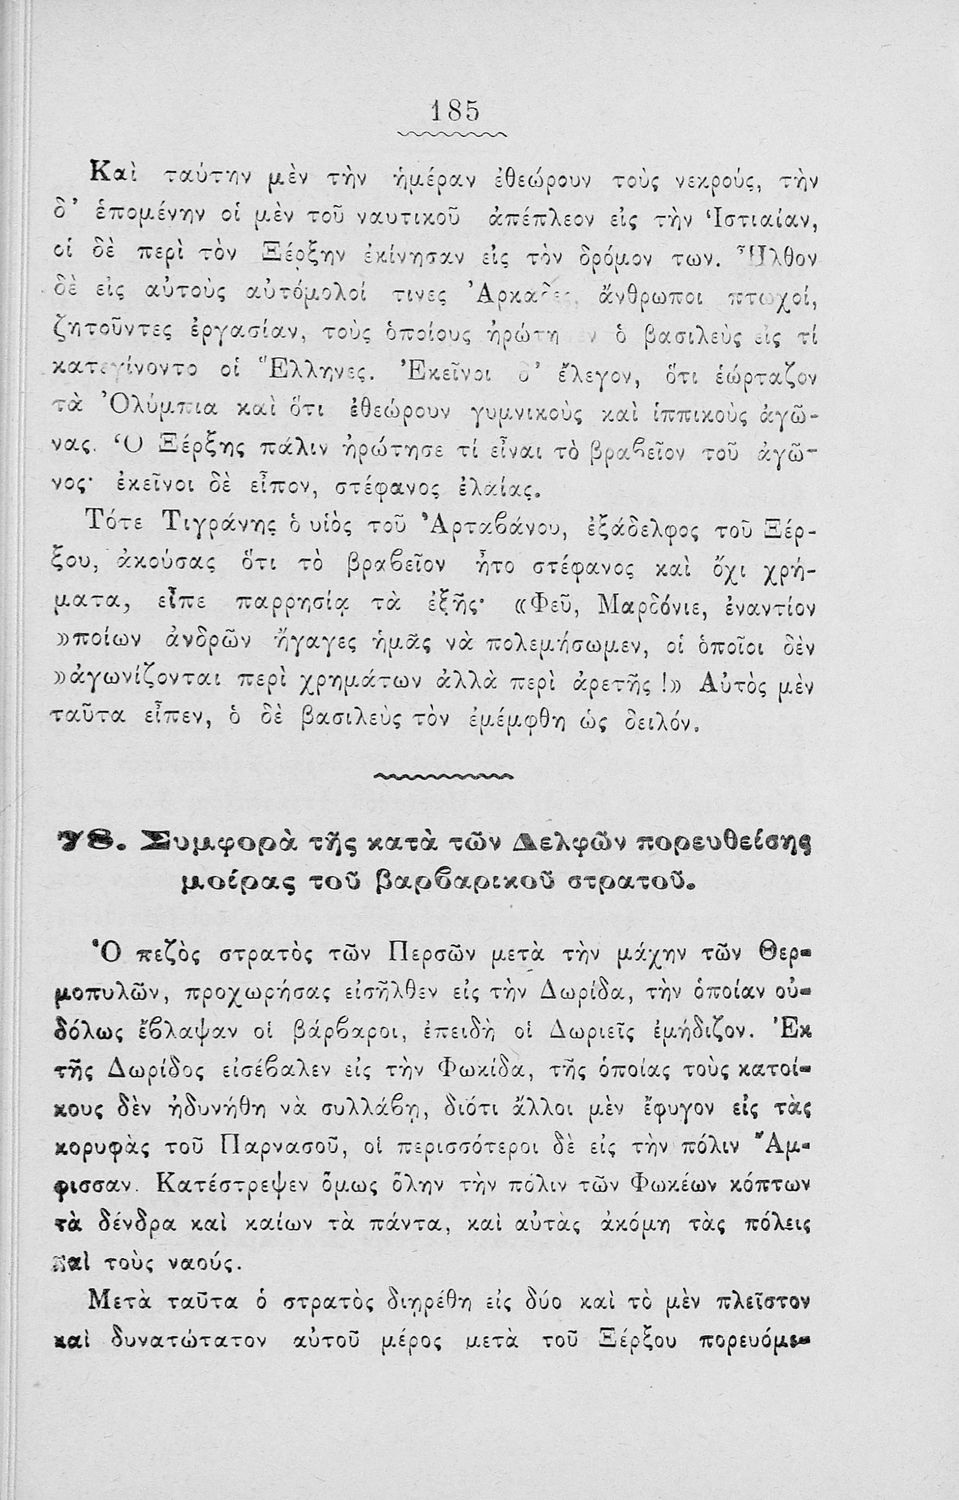 185
Καὶ ταύτην μὲν τὴν ἡμέραν ἐθεώρουν τοὺς νεκρούς, τὴν
δ’ ἑπομένην οἱ μὲν τοῦ ναυτικοῦ ἀπέπλεον εἰς τὴν Ἱστιαίαν,
οἱ δὲ περὶ τὸν Ξέρξην ἐκίνησαν εἰς τὸν δρόμον των. Ἦλθον
δὲ εἰς αὐτοὺς αὐτόμολοί τινες Ἀρκάδες, ἄνθρωποι πτωχοί,
ζητοῦντες ἐργασίαν, τοὺς ὁποίους ἠρώτησεν ὁ βασιλεὺς εἰς τί
κατεγίνοντο οἱ Ἕλληνες. Ἐκεῖνοι δ’ ἔλεγον, ὅτι ἑώρταζον
τὰ Ὀλύμπια καὶ ὅτι ἐθεώρουν γυμνικοὺς καὶ ἱππικοὺς ἀγῶ-
νας. Ὁ Ξέρξης πάλιν ἠρώτησε τί εἶναι τὸ βραβεῖον τοῦ ἀγῶ-
νος· ἐκεῖνοι δὲ εἶπον, στέφανος ἐλαίας.
Τότε Τιγράνης ὁ υἱὸς τοῦ Ἀρταβάνου, ἐξάδελφος τοῦ Ξέρ-
ξου, ἀκούσας ὅτι τὸ βραβεῖον ἦτο στέφανος καὶ ὄχι χρή-
ματα, εἶπε παρρησίᾳ τὰ ἑξῆς· «Φεῦ, Μαρδόνιε, ἐναντίον
»ποίων ἀνδρῶν ἤγαγες ἡμᾶς νὰ πολεμήσωμεν, οἱ ὁποῖοι δὲν
»ἀγωνίζονται περὶ χρημάτων ἀλλὰ περὶ ἀρετῆς!» Αὐτὸς μὲν
ταῦτα εἶπεν, ὁ δὲ βασιλεὺς τὸν ἐμέμφθη ὡς δειλόν.
78. Συμφορὰ τῆς κατὰ τῶν Δελφῶν πορευθείσης
μοίρας τοῦ βαρβαρικοῦ στρατοῦ.
Ὁ πεζὸς στρατὸς τῶν Περσῶν μετὰ τὴν μάχην τῶν Θερ-
μοπυλῶν, προχωρήσας εἰσῆλθεν εἰς τὴν Δωρίδα, τὴν ὁποίαν οὐ-
δόλως ἔβλαψαν οἱ βάρβαροι, ἐπειδὴ οἱ Δωριεῖς ἐμήδιζον. Ἐκ
τῆς Δωρίδος εἰσέβαλεν εἰς τὴν Φωκίδα, τῆς ὁποίας τοὺς κατοί-
κους δὲν ἠδυνήθη νὰ συλλάβῃ, διότι ἄλλοι μὲν ἔφυγον εἰς τὰς
κορυφὰς τοῦ Παρνασοῦ, οἱ περισσότεροι δὲ εἰς τὴν πόλιν Ἄμ-
φισσαν. Κατέστρεψεν ὅμως ὅλην τὴν πόλιν τῶν Φωκέων κόπτων
τὰ δένδρα καὶ καίων τὰ πάντα, καὶ αὐτὰς ἀκόμη τὰς πόλεις
καὶ τοὺς ναούς.
Μετὰ ταῦτα ὁ στρατὸς διῃρέθη εἰς δύο καὶ τὸ μὲν πλεῖστον
καὶ δυνατώτατον αὐτοῦ μέρος μετὰ τοῦ Ξέρξου πορευόμε-